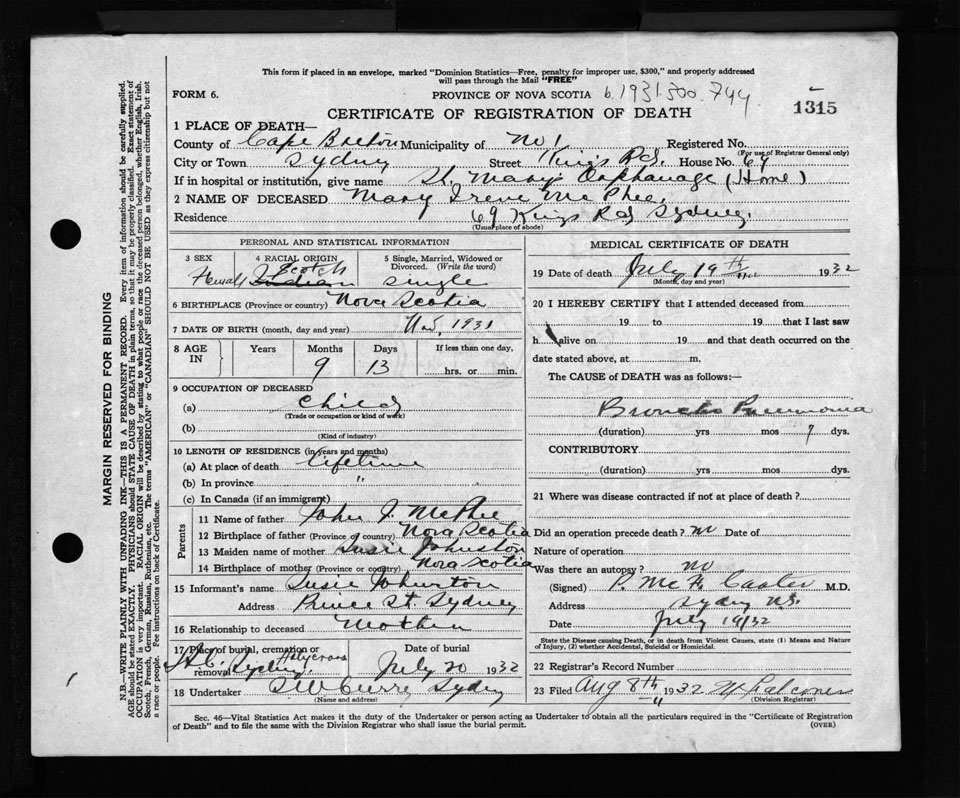 This form if placed in an envelope, marked "Dominion Statistics—Free, penalty for improper use, $300," and properly addressed
will pass through the Mail "FREE"
FORM 6. PROVINCE OF NOVA SCOTIA b.1931.500.744
CERTIFICATE OF REGISTRATION OF DEATH 1315
1 PLACE OF DEATH—
County of Cape Breton Municipality of No 1 Registered No.
(For use of Registrar General only)
City or Town Sydney Street Kings Rd. House No. 69
If in hospital or institution, give name St. Marys Orphanage (Home)
2 NAME OF DECEASED Mary Irene McPhee.
Residence 69 Kings Rd Sydney.
(Usual place of abode)
PERSONAL AND STATISTICAL INFORMATION
3 SEX 4 RACIAL ORIGIN 5 Single, Married, Widowed or Divorced. (Write the word)
Female Scotch Single
6 BIRTHPLACE (Province or country) Nova Scotia
7 DATE OF BIRTH (month, day and year) 1931
8 AGE IN Years Months Days If less than one day,
9 13 hrs. or min.
9 OCCUPATION OF DECEASED
(a) Child
(Trade or occupation or kind of work)
(b)
(Kind of industry)
10 LENGTH OF RESIDENCE (in years and months)
(a) At place of death lifetime
(b) In province "
(c) In Canada (if an immigrant)
Parents
11 Name of father John J. McPhee
12 Birthplace of father (Province or country) Nova Scotia
13 Maiden name of mother Susie Johnston
14 Birthplace of mother (Province or country) Nova Scotia
15 Informant's name Susie Johnston
Address Prince St. Sydney
16 Relationship to deceased Mother
17 Place of burial, cremation or removal Sydney Holycross Date of burial July 20 1932
18 Undertaker Sydney
(Name and address)
MEDICAL CERTIFICATE OF DEATH
19 Date of death July 19th 1932
(Month, day and year)
20 I HEREBY CERTIFY that I attended deceased from
19 to 19 that I last saw
h alive on 19 and that death occurred on the
date stated above, at m.
The CAUSE of DEATH was as follows:—
Broncho Pneumonia
(duration) yrs mos 7 dys.
CONTRIBUTORY
(duration) yrs mos dys.
21 Where was disease contracted if not at place of death?
Did an operation precede death? no Date of
Nature of operation
Was there an autopsy? no
(Signed) M.D.
Address Sydney N.S.
Date July 19/32
State the Disease causing Death, or in death from Violent Causes, state (1) Means and Nature
of Injury, (2) whether Accidental, Suicidal or Homicidal.
22 Registrar's Record Number
23 Filed Aug 8th 1932
(Division Registrar)
Sec. 46—Vital Statistics Act makes it the duty of the Undertaker or person acting as Undertaker to obtain all the particulars required in the "Certificate of Registration
of Death" and to file the same with the Division Registrar who shall issue the burial permit. (OVER)
MARGIN RESERVED FOR BINDING
N.B.—WRITE PLAINLY WITH UNFADING INK—THIS IS A PERMANENT RECORD. Every item of information should be carefully supplied.
AGE should be stated EXACTLY. PHYSICIANS should STATE CAUSE OF DEATH in plain terms, so that it may be properly classified. Exact statement of
OCCUPATION is very important. RACIAL ORIGIN will be described by stating to what people or race the deceased person belonged, whether English, Irish,
Scotch, French, German, Russian, Ruthenian, etc. The terms "AMERICAN" or "CANADIAN" SHOULD NOT BE USED as they express citizenship but not
a race or people. Fee instructions on back of Certificate.